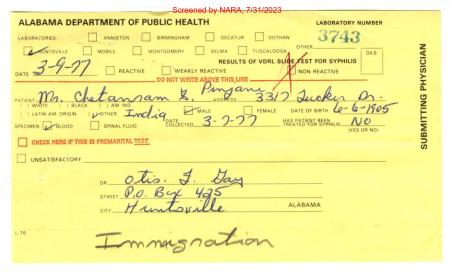 Screened by NARA, 7/31/2023
ALABAMA DEPARTMENT OF PUBLIC HEALTH
LABORATORY NUMBER
3743
LABORATORIES: ANNISTON BIRMINGHAM DECATUR DOTHAN
HUNTSVILLE MOBILE MONTGOMERY SELMA TUSCALOOSA OTHER
DILS
RESULTS OF VDRL SLIDE TEST FOR SYPHILIS
DATE 3-9-77 REACTIVE WEAKLY REACTIVE NON-REACTIVE
DO NOT WRITE ABOVE THIS LINE
PATIENT Mr. Chetanram E. Pinjani ADDRESS 3317 Tucker Dr.
WHITE BLACK AM IND MALE FEMALE DATE OF BIRTH 6-6-1905
LATIN AM ORIGIN OTHER India
SPECIMEN: BLOOD SPINAL FLUID COLLECTED 3-7-77 HAS PATIENT BEEN TREATED FOR SYPHILIS NO
(YES OR NO)
CHECK HERE IF THIS IS PREMARITAL TEST
UNSATISFACTORY
DR Otis F. Gay
STREET P.O. Box 425
CITY Huntsville ALABAMA
L 76
Immigration
SUBMITTING PHYSICIAN